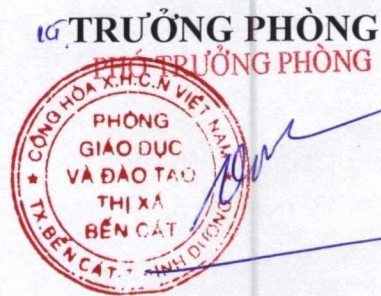 KT. TRƯỞNG PHÒNG
PHÓ TRƯỞNG PHÒNG
CỘNG HÒA X.H.C.N VIỆT NAM
PHÒNG
GIÁO DỤC
VÀ ĐÀO TẠO
THỊ XÃ
BẾN CÁT
TX BẾN CÁT.T.BÌNH DƯƠNG